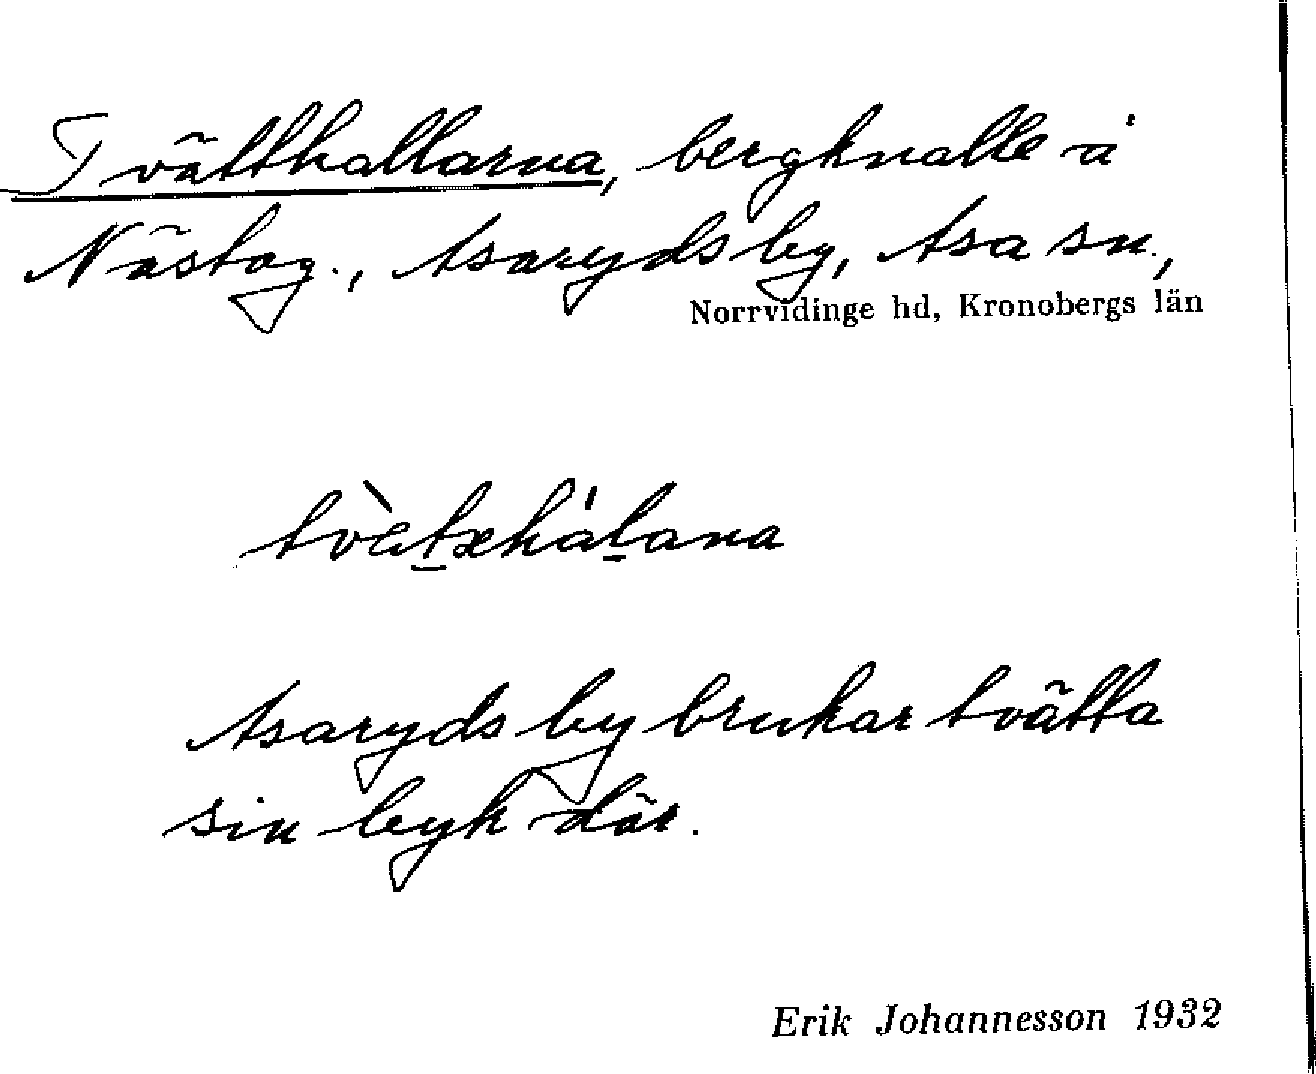 Tvätthallarna, bergknalle å
Nästag., Asaryds by, Asa sn.,
Norrvidinge hd, Kronobergs län
Asaryds by brukar tvätta
sin byk där.
Erik Johannesson 1932